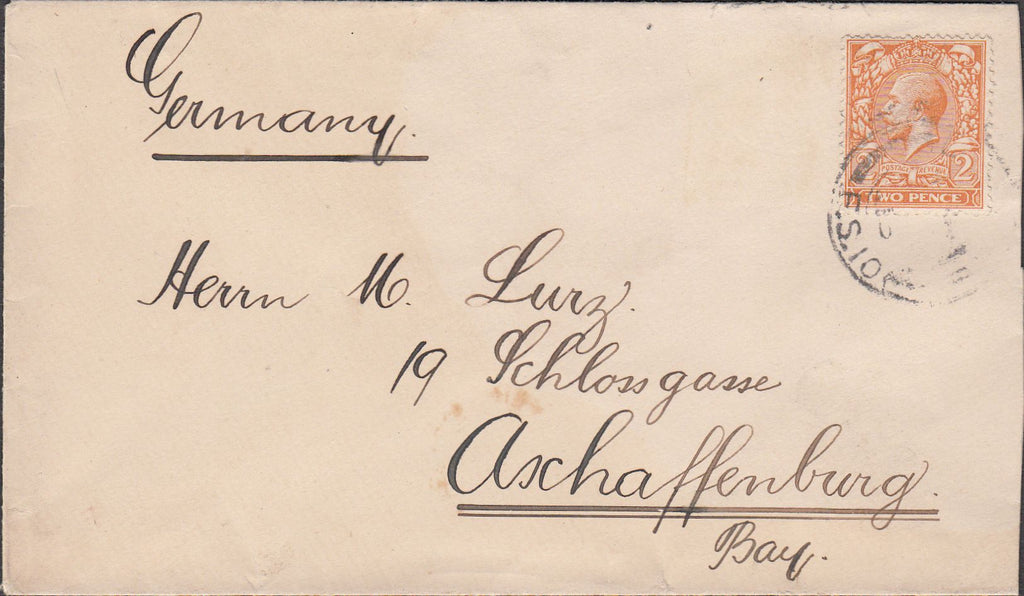 Germany.
POSTAGE REVENUE
2
TWO PENCE
Herrn M. Lurz.
19 Schlossgasse
Aschaffenburg.
Bay.